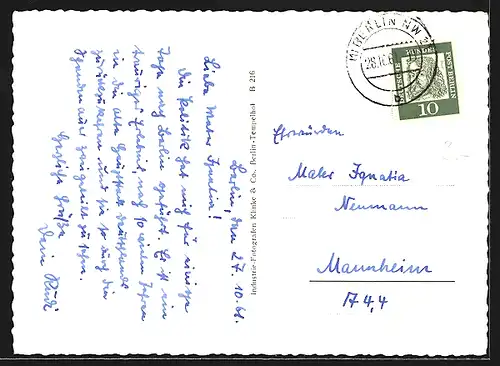 Berlin, den 27.10.61.
Liebe Mater Ignatia!
Die Politik hat mich für einige
Tage nach Berlin geführt. Es ist ein
trauriges Erlebnis, nach 10 Jahren
in die alte Hauptstadt Deutschlands
zurückzukehren und sie so durch die
zweigeteilt zu sehen.
Herzliche Grüße
Dein Rudi
Industrie-Fotografen Klinke & Co., Berlin-Tempelhof B 216
(1) BERLIN NW
28.10.61
DEUTSCHE BUNDESPOST BERLIN
10
Ehrwürden
Mater Ignatia
Neumann
Mannheim
A 4,4